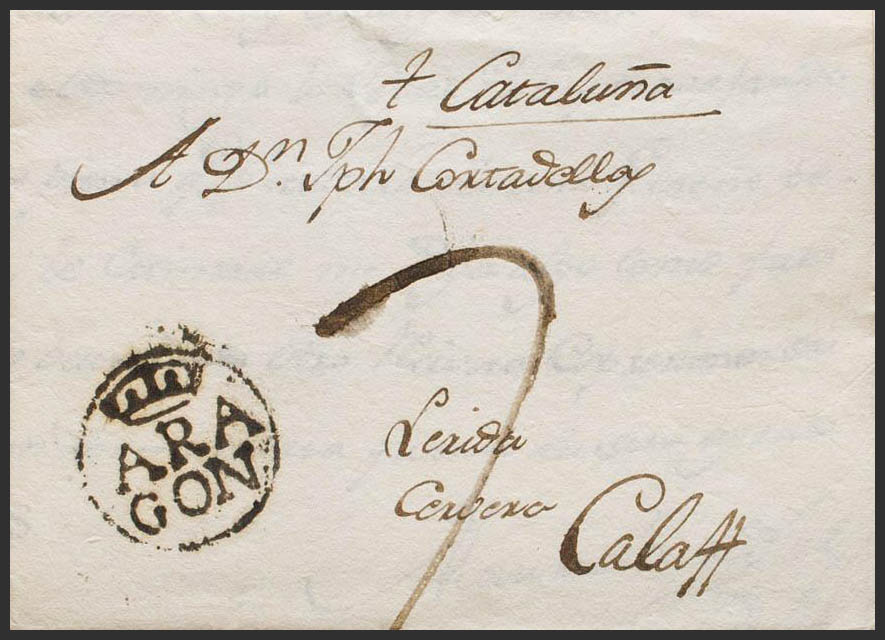 † Cataluña
A Dn. Jph Cortadellas
7
ARA
GON
Lerida
Cervera
Calaff